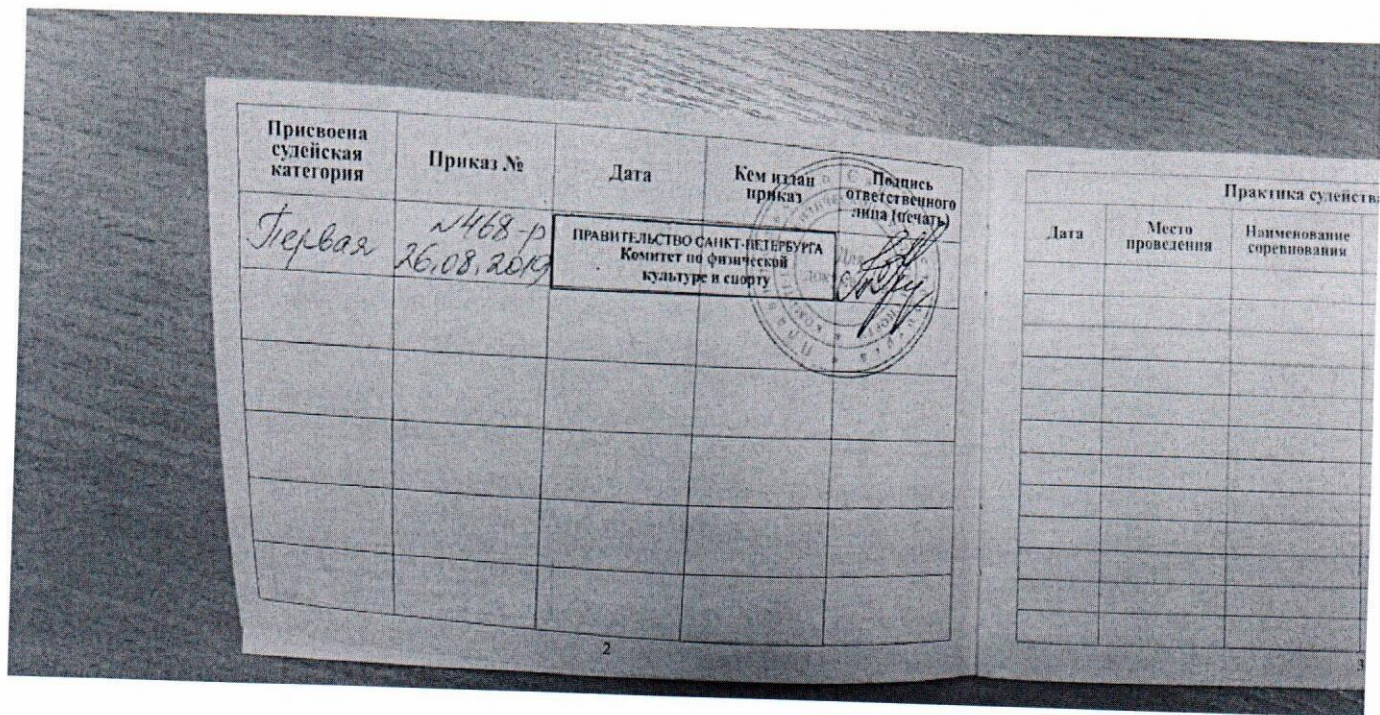 Присвоена
судейская
категория
Приказ №
Дата
Кем издан
приказ
Подпись
ответственного
лица (печать)
Первая
№468-р
26.08.2019
ПРАВИТЕЛЬСТВО САНКТ-ПЕТЕРБУРГА
Комитет по физической
культуре и спорту
Для
2
Практика судейства
Дата
Место
проведения
Наименование
соревнования
3